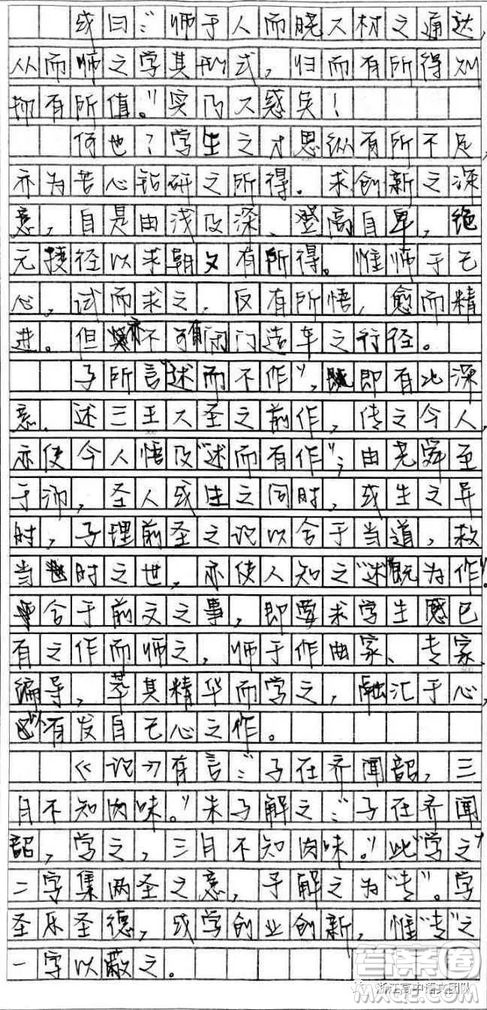 或曰："师于人而晓大材之通达，
从而师之学其形式，归而有所得则
抑有所值。"实乃大惑矣！
何也？学生之才思纵有所不足，
亦为苦心钻研之所得。求创新之深
意，自是由浅及深、登高自卑，绝
无捷径以求朝夕有所得。惟师于己
心，试而求之，反有所悟，愈而精
进。但亦不可有闭门造车之行径。
子所言"述而不作"，即有此深
意。述三王大圣之前作，传之今人，
亦使今人悟及"述而有作"；由尧舜至
于汤，圣人或生之同时，或生之异
时，子理前圣之论以合于当道，救
当时之世，亦使人知之"述既为作"。
合于前文之事，即要求学生感已
有之作而师之，师于作曲家、专家、
编导，萃其精华而学之，融汇于心，
有发自己心之作。
《论》有言："子在齐闻韶，三
月不知肉味。"朱子解之："子在齐闻
韶，学之，三月不知肉味。"此"学之"
二字集两圣之意，予解之为"专"。学
圣乐圣德，或学创业创新，惟"专"之
一字以蔽之。
答案圈
浙江高中语文团队
MXQE.COM